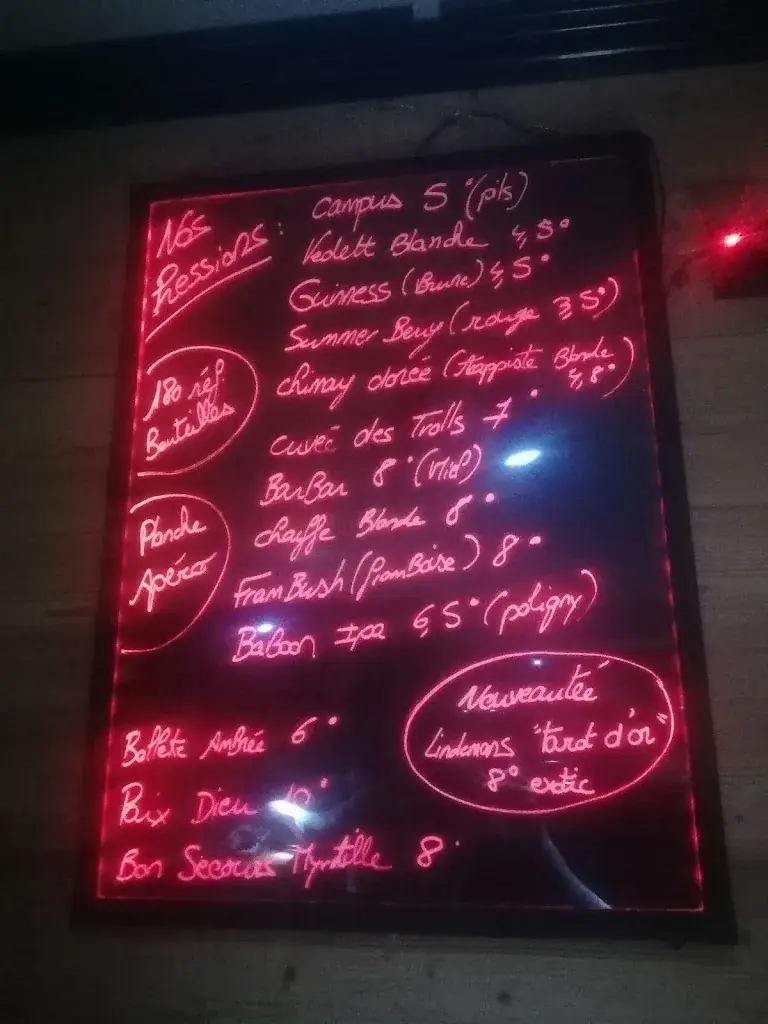 Nos
Pressions :
Campus 5° (pils)
Vedett Blanche 4,5°
Guiness (Brune) 4,5°
Summer Beny (rouge 3,5°)
Chimay dorée (Trappiste Blonde
4,8°)
180 réf.
Bouteilles
Cuveé des Trolls 7°
BarBar 8° (Miel)
Chouffe Blonde 8°
Planche
Apéro
FramBush (FramBoise) 8°
Baboon Ipa 6,5° (poligny)
Nouveautée
Lindemans "tarot d'or"
8° exotic
Bollete Ambrée 6°
Paix Dieu 10°
Bon Secours Myrtille 8°